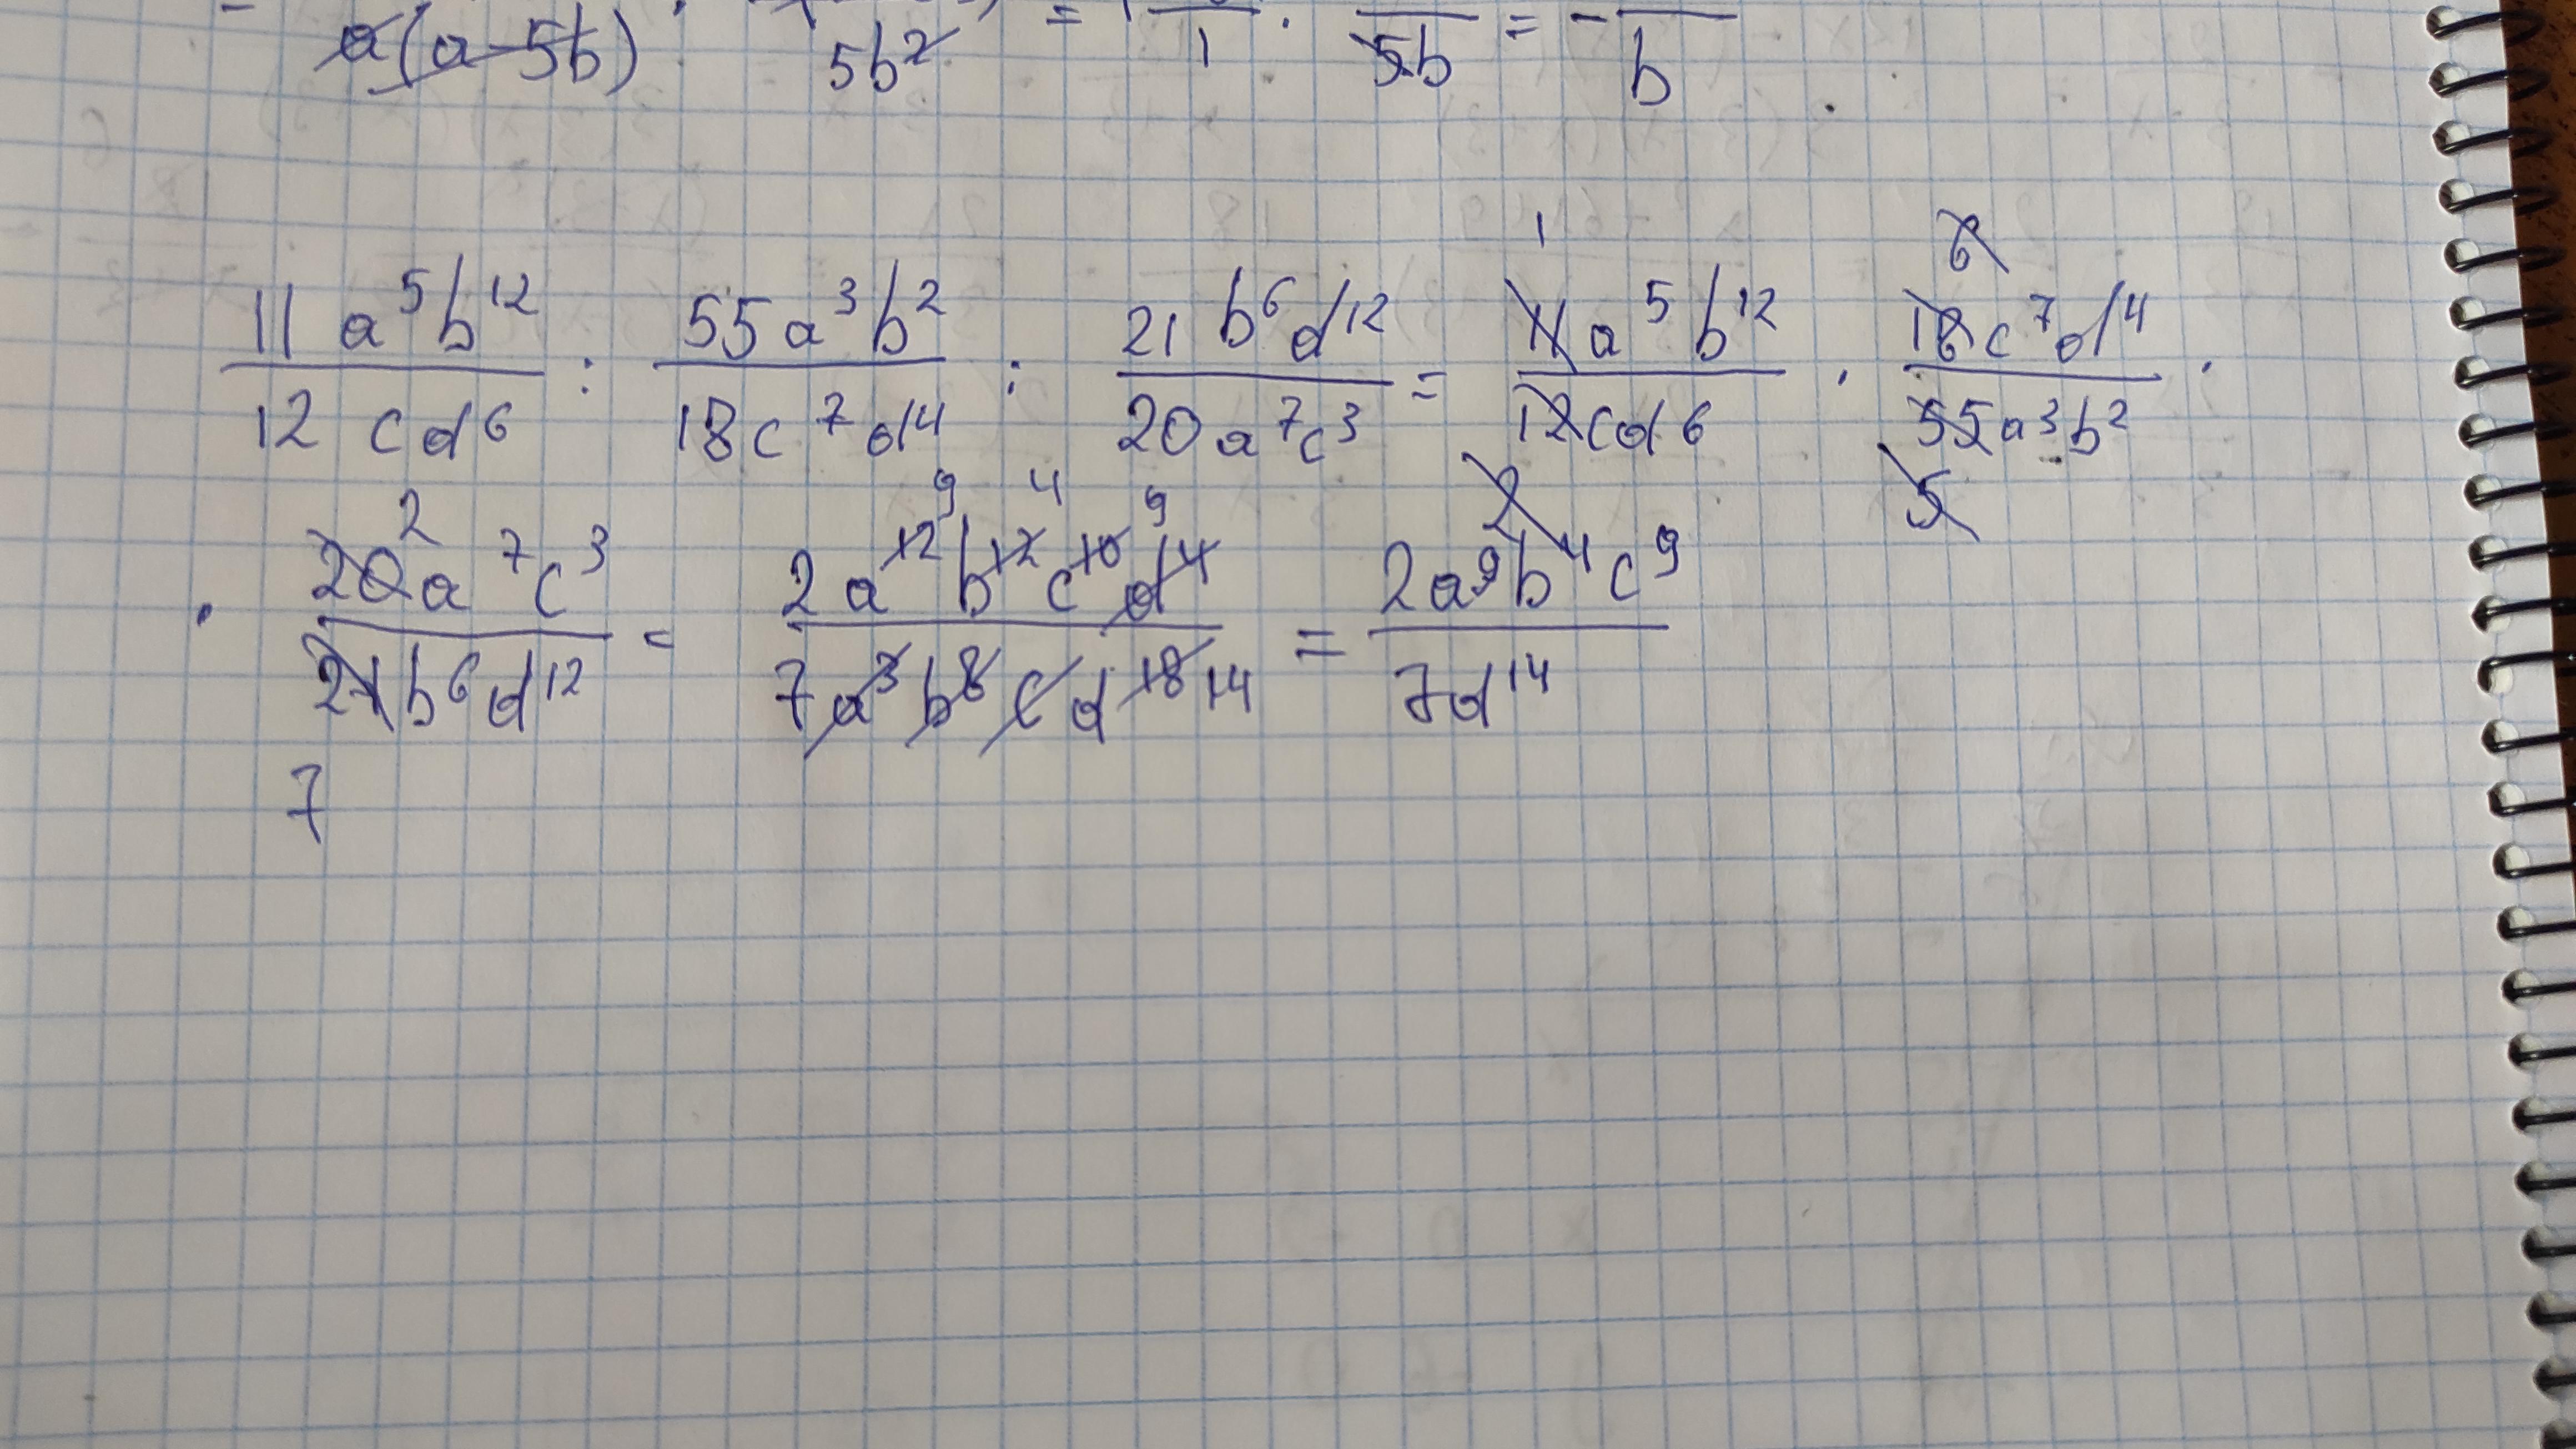 a(a-5b) 5b² = 1 · 5b = - b
11a⁵b¹²/12cd⁶ : 55a³b²/18c⁷d⁴ : 21b⁶d¹²/20a⁷c³ = 11a⁵b¹²/12cd⁶ · 18c⁷d⁴/55a³b² ·
· 20a⁷c³/21b⁶d¹² = 2a¹²b¹²c¹⁰d⁴/7a³b⁸cd¹⁸ 14 = 2a⁹b⁴c⁹/7d¹⁴
7